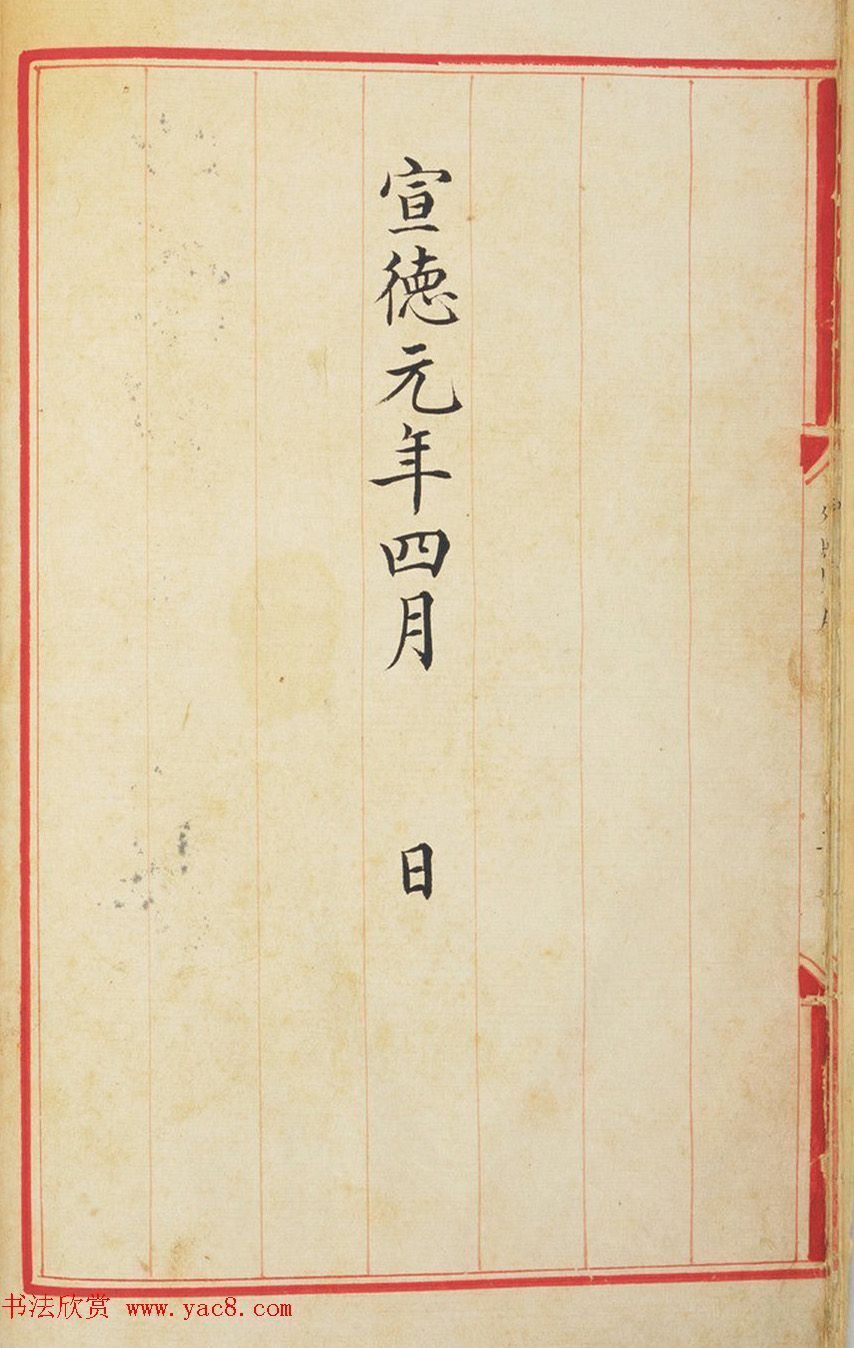 宣徳元年四月 日
书法欣赏 www.yac8.com